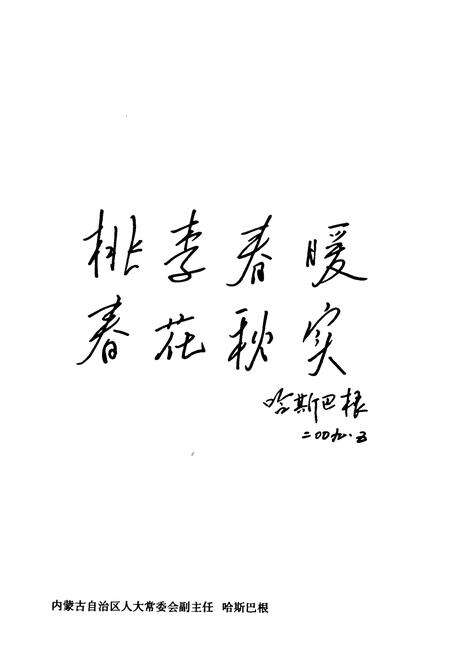 桃李春暖
春花秋实
哈斯巴根
二〇〇九.五
内蒙古自治区人大常委会副主任 哈斯巴根